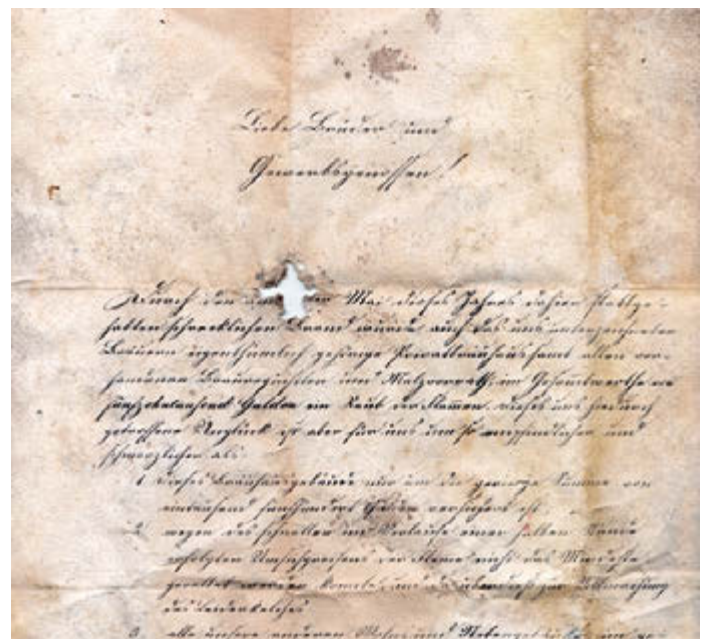 Liebe Brüder und
Gewerbsgenossen!
Durch den am ten Mai dieses Jahres dahier stattge-
habten schrecklichen Brand wurde auch das uns unterzeichneten
Bräuern eigenthümlich gehörige Privatbräuhaus samt allen vor-
handenen Bräurequisiten und Malzvorrath, im Gesamtwerthe von
fünfzehntausend Gulden ein Raub der Flamen. Dieses uns hiedurch
getroffene Unglück ist aber für uns um so empfindlicher und
schmerzlicher als:
1 dieses Bräuhausgebäude nur um die geringe Summe von
eintausend fünfhundert Gulden versichert ist
2. wegen des schnellen im Verlaufe einer halben Stunde
erfolgten Umsichgreifens der Flame nicht das Mindeste
gerettet werden konnte, und da überdieß zur Vollmachung
des Leidenkelches
3. alle unsere anderen Wohn und Nebengebäude